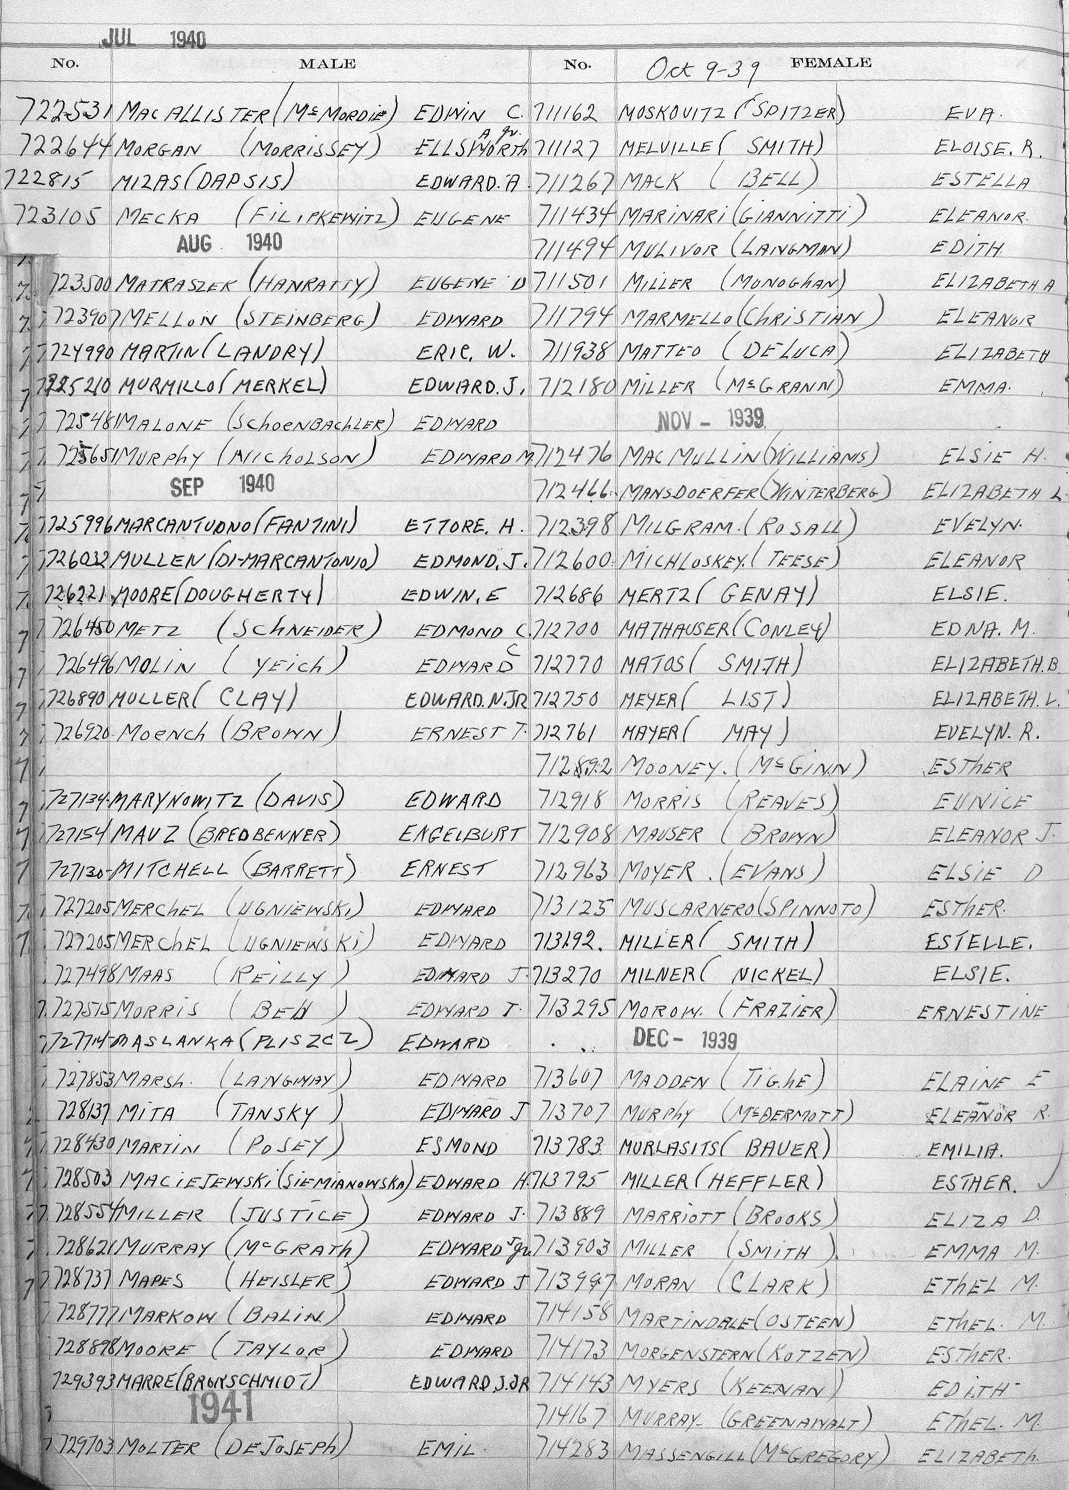 JUL 1940
No. MALE No. Oct 9-39 FEMALE
722531 MACALLISTER (McMORDIE) EDWIN C. 711162 MOSKOVITZ (SPITZER) EVA.
722644 MORGAN (MORRISSEY) ELLSWORTH A. Jr. 711127 MELVILLE (SMITH) ELOISE. R.
722815 MIZAS (DAPSIS) EDWARD. A. 711267 MACK (BELL) ESTELLA
723105 MECKA (FILIPKEWITZ) EUGENE 711434 MARINARI (GIANNITTI) ELEANOR.
AUG 1940 711494 MULIVOR (LANGMAN) EDITH.
723500 MATRASZEK (HANRATTY) EUGENE D 711501 MILLER (MONOGHAN) ELIZABETH A
723907 MELLON (STEINBERG) EDWARD 711794 MARMELLO (CHRISTIAN) ELEANOR
724990 MARTIN (LANDRY) ERIC, W. 711938 MATTEO (DELUCA) ELIZABETH
725210 MURMILLO (MERKEL) EDWARD. J. 712180 MILLER (McGRANN) EMMA.
725481 MALONE (SCHOENBACHLER) EDWARD NOV - 1939
725651 MURPHY (NICHOLSON) EDWARD M 712476 MACMULLIN (WILLIAMS) ELSIE H.
SEP 1940 712466 MANSDOERFER (WINTERBERG) ELIZABETH L.
725996 MARCANTUONO (FANTINI) ETTORE. H. 712398 MILGRAM. (ROSALL) EVELYN.
726032 MULLEN (DI-MARCANTONIO) EDMOND, J. 712600 MICHLOSKEY. (TEESE) ELEANOR
726221 MOORE (DOUGHERTY) EDWIN, E 712686 MERTZ (GENAY) ELSIE.
726450 METZ (SCHNEIDER) EDMOND C. 712700 MATHAUSER (CONLEY) EDNA. M.
726496 MOLIN (YEICH) EDWARD C 712770 MATOS (SMITH) ELIZABETH. B.
726890 MULLER (CLAY) EDWARD. N. JR 712750 MEYER (LIST) ELIZABETH. V.
726920 MOENCH (BROWN) ERNEST T. 712761 MAYER (MAY) EVELYN. R.
712892 MOONEY. (McGINN) ESTHER
727134 MARYNOWITZ (DAVIS) EDWARD 712918 MORRIS (REAVES) EUNICE
727154 MAUZ (BREDBENNER) ENGELBURT 712908 MAUSER (BROWN) ELEANOR J.
727130 MITCHELL (BARRETT) ERNEST 712963 MOYER. (EVANS) ELSIE D
727205 MERCHEL (UGNIEWSKI) EDWARD 713125 MUSCARNERO (SPINNOTO) ESTHER.
727205 MERCHEL (UGNIEWSKI) EDWARD 713192. MILLER (SMITH) ESTELLE.
727498 MAAS (REILLY) EDWARD J. 713270 MILNER (NICKEL) ELSIE.
727515 MORRIS (BEH) EDWARD T. 713295 MOROW. (FRAZIER) ERNESTINE
727714 MASLANKA (PLISZCZ) EDWARD DEC - 1939
727853 MARSH. (LANGWAY) EDWARD 713607 MADDEN (TIGHE) ELAINE E
728137 MITA (TANSKY) EDWARD J 713707 MURPHY (McDERMOTT) ELEANOR R.
728430 MARTIN (POSEY) ESMOND 713783 MURLASITS (BAUER) EMILIA.
728503 MACIEJEWSKI (SIEMIANOWSKA) EDWARD H. 713795 MILLER (HEFFLER) ESTHER.
728554 MILLER (JUSTICE) EDWARD J. 713889 MARRIOTT (BROOKS) ELIZA D.
728621 MURRAY (McGRATH) EDWARD Jr. 713903 MILLER (SMITH) EMMA M.
728737 MAPES (HEISLER) EDWARD J 713947 MORAN (CLARK) ETHEL M.
728777 MARKOW (BALIN) EDWARD 714158 MARTINDALE (OSTEEN) ETHEL. M.
728898 MOORE (TAYLOR) EDWARD 714173 MORGENSTERN (KOTZEN) ESTHER.
729393 MARRE (BRORSCHMIDT) EDWARD J. JR 714143 MYERS (KEENAN) EDITH
1941 714167 MURRAY. (GREENAWALT) ETHEL. M.
729703 MOLTER (DEJOSEPH) EMIL. 714283 MASSENGILL (McGREGORY) ELIZABETH.